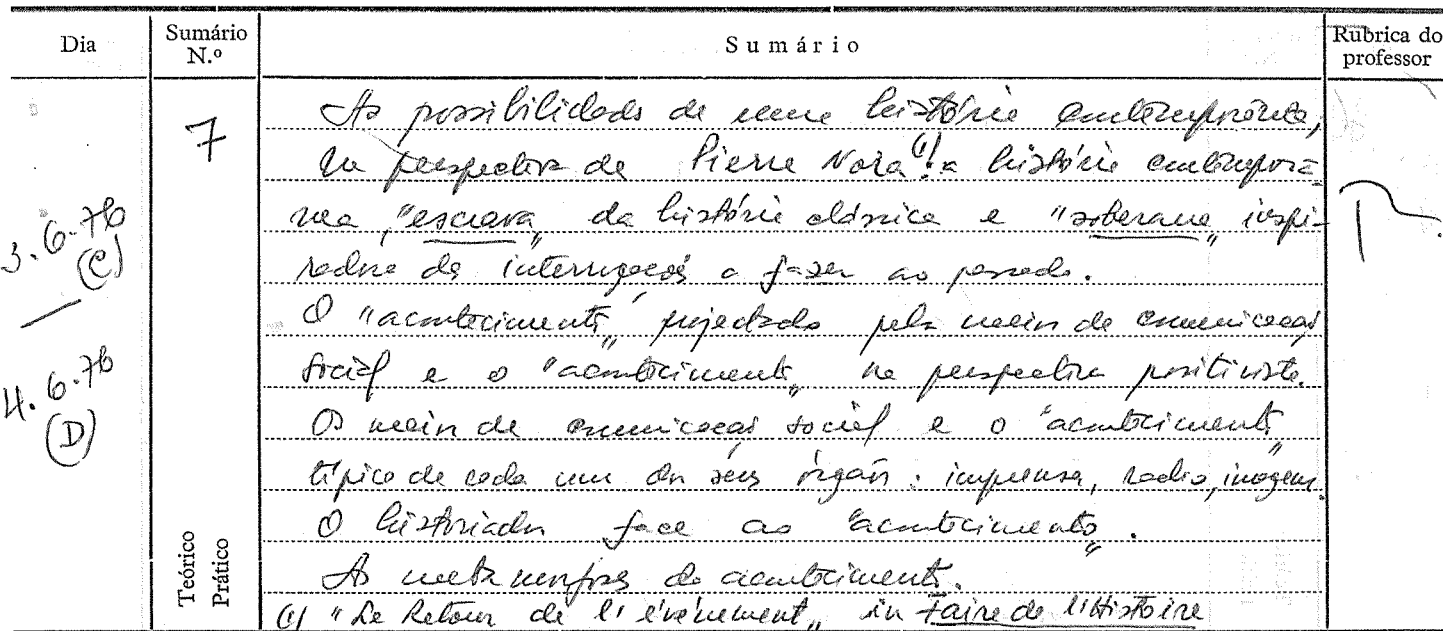 Dia
Sumário N.º
Sumário
Rubrica do professor
3.6.76 (C)
4.6.76 (D)
7
Teórico
Prático
As possibilidades de uma história contemporânea,
na perspectiva de Pierre Nora(1): a história contemporâ-
nea, "escrava" da história clássica e "soberana" inspi-
radora de interrogações a fazer ao passado.
O "acontecimento" projectado pelos meios de comunicação
social e o "acontecimento" na perspectiva positivista.
Os meios de comunicação social e o "acontecimento"
típico de cada um dos seus órgãos: imprensa, radio, imagem.
O historiador face ao "acontecimento".
As metamorfoses do acontecimento.
(1) "Le Retour de l'évènement" in Faire de l'Histoire